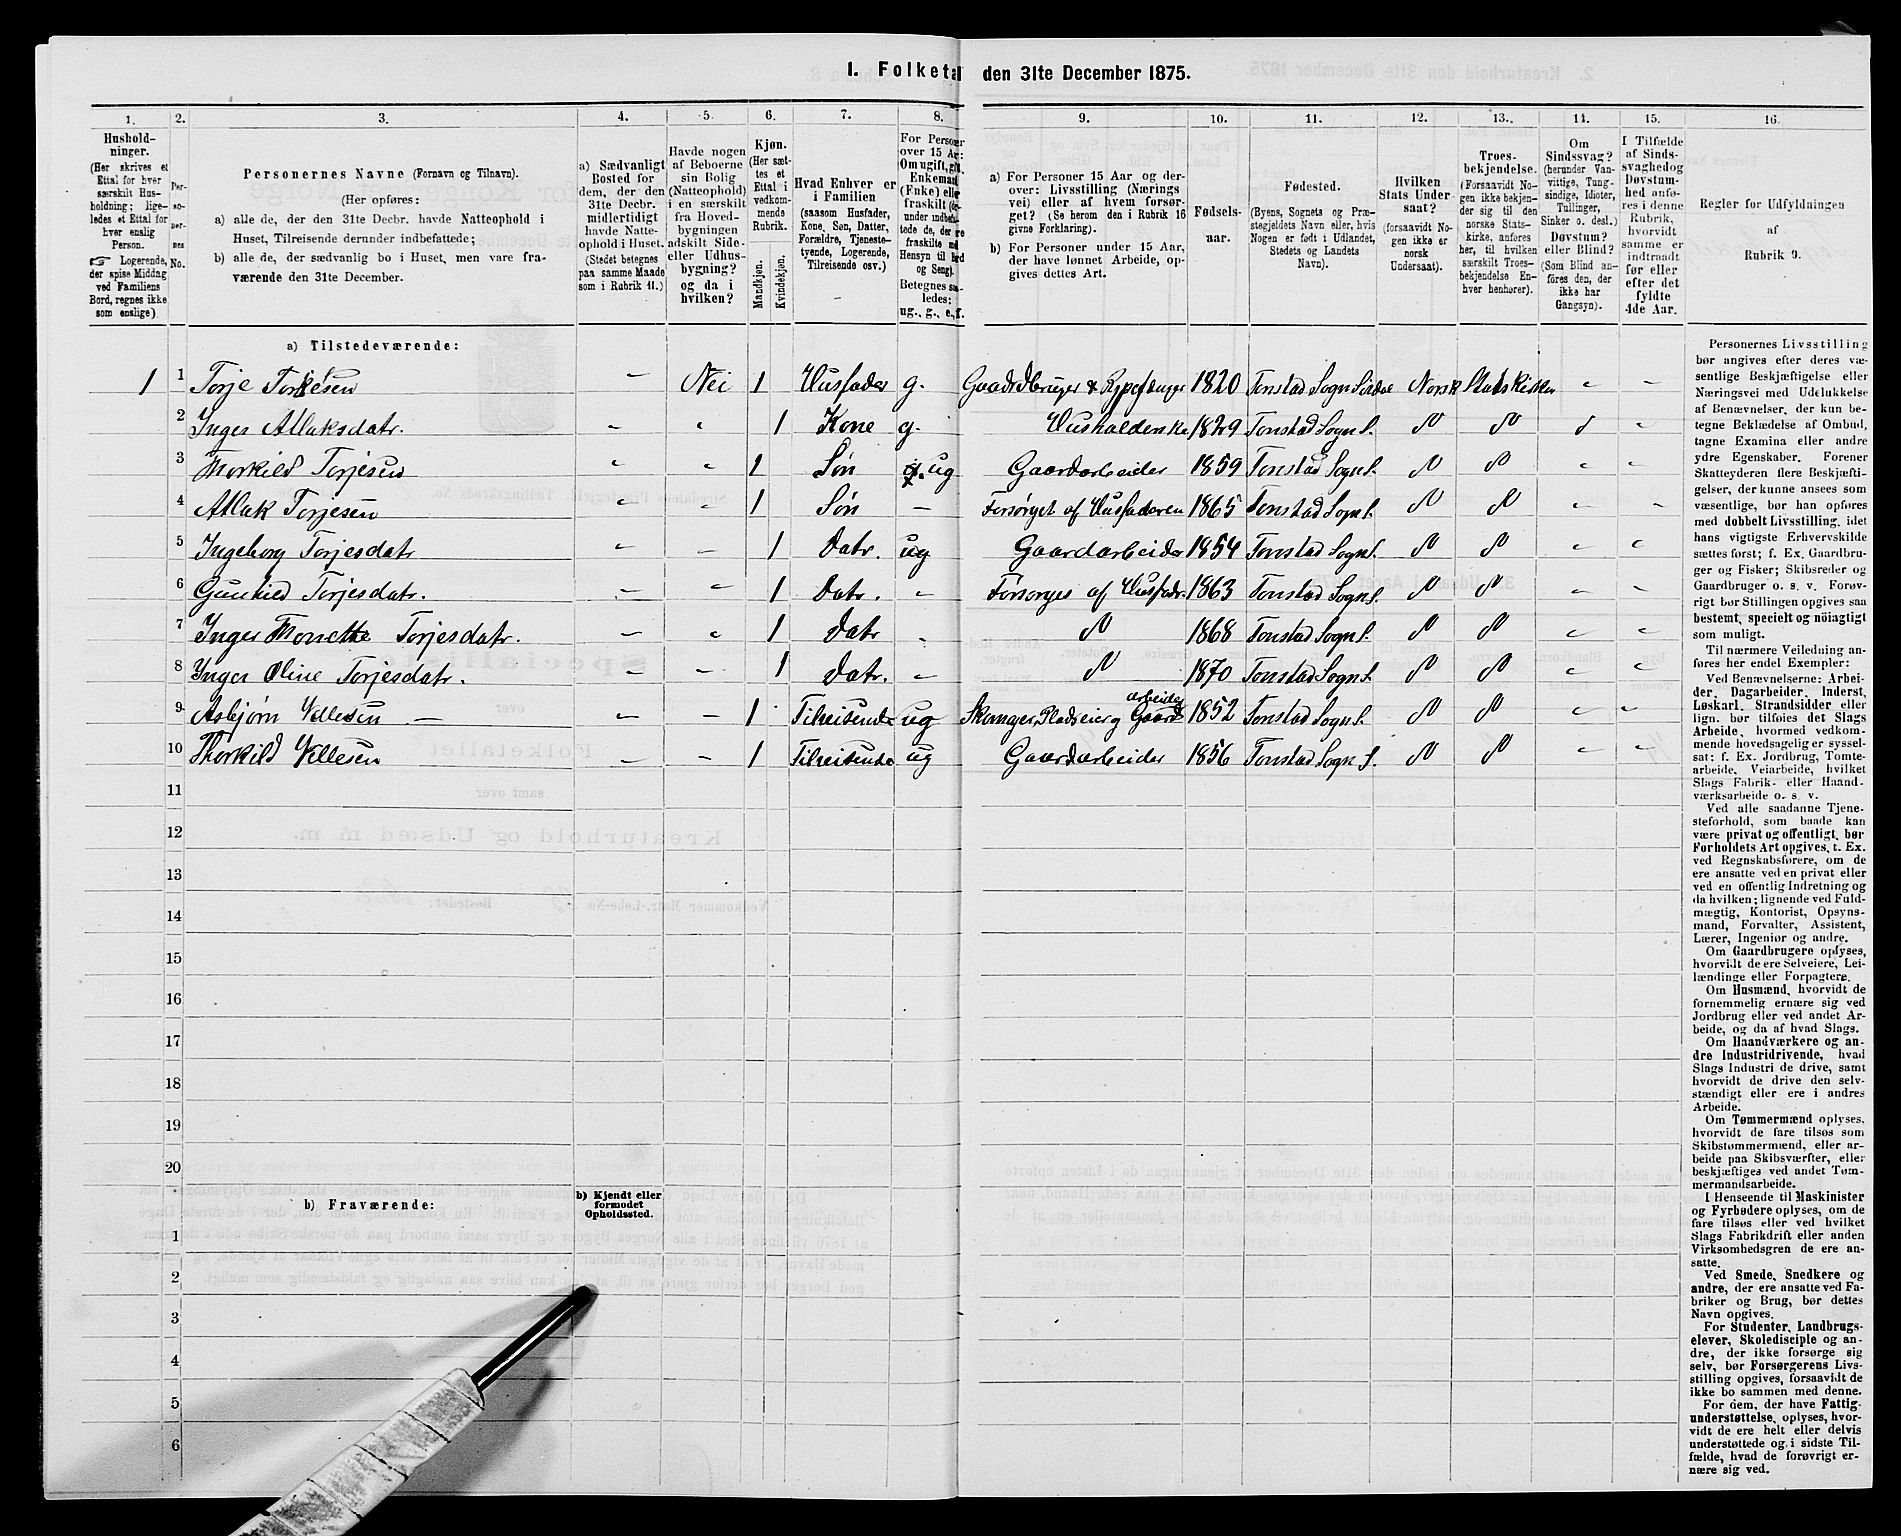 1. Folketa den 31te December 1875.
1. 2. 3. 4. 5. 6. 7. 8. 9. 10. 11. 12. 13. 14. 15. 16.
Hushold-
ninger.
(Her skrives et
Ettal for hver
særskilt Hus-
holdning; lige-
ledes et Ettal for
hver enslig
Person.
☞ Logerende,
der spise Middag
ved Familiens
Bord, regnes ikke
som enslige)
Per-
so-
ner-
nes
No.
Personernes Navne (Fornavn og Tilnavn).
(Her opføres:
a) alle de, der den 31te Decbr. havde Natteophold i
Huset, Tilreisende derunder indbefattede;
b) alle de, der sædvanlig bo i Huset, men vare fra-
værende den 31te December.
a) Sædvanligt
Bosted for
dem, der den
31te Decbr.
midlertidigt
havde Natte-
ophold i Huset.
(Stedet betegnes
paa samme Maade
som i Rubrik 11.)
Havde nogen
af Beboerne
sin Bolig
(Natteophold)
i en særskilt
fra Hoved-
bygningen
adskilt Side-
eller Udhus-
bygning?
og da i
hvilken?
Kjøn.
(Her sæt-
tes et
Ettal i
vedkom-
mende
Rubrik.
Mandkjøn.
Kvindekjøn.
Hvad Enhver er
i Familien
(saasom Husfader,
Kone, Søn, Datter,
Forældre, Tjeneste-
tyende, Logerende,
Tilreisende osv.)
For Personer
over 15 Aar:
Om ugift, gift,
Enkemand
(Enke) eller
fraskilt
Betegnes saa-
ledes:
ug., g., e., f.
a) For Personer 15 Aar og der-
over: Livsstilling (Nærings
vei) eller af hvem forsør-
get? (Se herom den i Rubrik 16
givne Forklaring).
b) For Personer under 15 Aar,
der have lønnet Arbeide, op-
gives dettes Art.
Fødsels-
aar.
Fødested.
(Byens, Sognets og Præ-
stegjeldets Navn eller, hvis
Nogen er født i Udlandet,
Stedets og Landets
Navn).
Hvilken
Stats Under
saat?
(forsaavidt No-
gen ikke er
norsk
Undersaat).
Troes-
bekjendelse.
(Forsaavidt No-
gen ikke bekjen-
der sig til den
norske Stats-
kirke, anføres
her, til hvilken
særskilt Troes-
bekjendelse En-
hver henhører).
Om
Sindssvag?
(herunder Van-
vittige, Tung-
sindige, Idioter,
Tullinger,
Sinker o. desl.)
Døvstum?
eller Blind?
(Som Blind an-
føres den, der
ikke har
Gangsyn).
I Tilfælde
af Sinds-
svaghed og
Døvstum-
hed anfø-
res i denne
Rubrik,
hvorvidt
samme er
indtraadt
før eller
efter det
fyldte
4de Aar.
Regler for Udfyldningen
af
Rubrik 9.
a) Tilstedeværende:
1 1 Torje Torkesen – Nei 1 Husfader g. Gaardbruger & Rypefanger 1820 Tonstad Sogn Sirdal Norsk Statskirken
2 Inger Atlaksdatr. 1 Kone g. 1829 Tonstad Sogn S.
3 Thorkild Torjesen 1 Søn ug Gaardarbeider 1859 Tonstad Sogn S.
4 Atlak Torjesen 1 Søn – Forsørget af Husfaderen 1865 Tonstad Sogn S.
5 Ingeborg Torjesdatr 1 Datr. ug Gaardarbeider 1854 Tonstad Sogn S.
6 Gunhild Torjesdatr. 1 Datr. – Forsørges af Husfadr. 1863 Tonstad Sogn S.
7 Inger Thonette Torjesdatr. 1 Datr – 1868 Tonstad Sogn S.
8 Inger Oline Torjesdatr. 1 Datr. – 1870 Tonstad Sogn S.
9 Asbjørn – 1 Tilreisende ug Pladseier og Gaardarbeider 1852 Tonstad Sogn S.
10 Thorkild 1 Tilreisende ug Gaardarbeider 1856 Tonstad Sogn S.
11
12
13
14
15
16
17
18
19
20
b) Fraværende:
b) Kjendt eller
formodet
Opholdssted.
1
2
3
4
5
6
Personernes Livsstilling
bør angives efter deres væ-
sentlige Beskjæftigelse eller
Næringsvei med Udelukkelse
af Benævnelser, der kun be-
tegne Beklædelse af Ombud,
tagne Examina eller andre
ydre Egenskaber. Forener
Skatteyderen flere Beskjæfti-
gelser, der kunne ansees som
væsentlige, bør han opføres
med dobbelt Livsstilling, idet
hans vigtigste Erhvervskilde
sættes først; f. Ex. Gaardbru-
ger og Fisker; Skibsreder og
Gaardbruger o. s. v. Forøv-
rigt bør Stillingen opgives saa
bestemt, specielt og nöiagtigt
som muligt.
Til nærmere Veiledning an-
føres her endel Exempler:
Ved Benævnelserne: Arbei-
der, Dagarbeider, Inderst,
Løskarl, Strandsidder eller
lign. bør tilføies det Slags
Arbeide, hvormed vedkom-
mende hovedsagelig er syssel-
sat; f. Ex. Jordbrug, Tomte-
arbeide, Veiarbeide, hvilket
Slags Fabrik- eller Haand-
værksarbeide o. s. v.
Ved alle saadanne Tjene-
steforhold, som baade kan
være privat og offentligt, bør
Forholdets Art opgives, t. Ex.
ved Regnskabsførere, om de
ere ansatte ved en privat eller
ved en offentlig Indretning og
da hvilken; lignende ved Fuld-
mægtig, Kontorist, Opsyns-
mand, Forvalter, Assistent,
Lærer, Ingeniør og andre.
Om Gaardbrugere oplyses,
hvorvidt de ere Selveiere, Lei-
lændinge eller Forpagtere.
Om Husmænd, hvorvidt de
fornemmelig ernære sig ved
Jordbrug eller ved andet Ar-
beide, og da af hvad Slags.
Om Haandværkere og an-
dre Industridrivende, hvad
Slags Industri de drive, samt
hvorvidt de drive den selv-
stændigt eller ere i andres
Arbeide.
Om Tømmermænd oplyses,
hvorvidt de fare tilsøs som
Skibstømmermænd, eller ar-
beide paa Skibsværfter, eller
beskjæftiges ved andet Tøm-
mermandsarbeide.
I Henseende til Maskinister
og Fyrbødere oplyses, om de
fare tilsøs eller ved hvilket
Slags Fabrikdrift eller anden
Virksomhedsgren de ere an-
satte.
Ved Smede, Snedkere og
andre, der ere ansatte ved Fa-
briker og Brug, bør dettes
Navn opgives.
For Studenter, Landbrugs-
elever, Skoledisciple og an-
dre, der ikke forsørge sig
selv, bør Forsørgerens Livs-
stilling opgives, forsaavidt de
ikke bo sammen med denne.
For dem, der have Fattig-
understøttelse, oplyses, hvor-
vidt de ere helt eller delvis
understøttede og i sidste Til-
fælde, hvad de forøvrigt er-
nære sig ved.